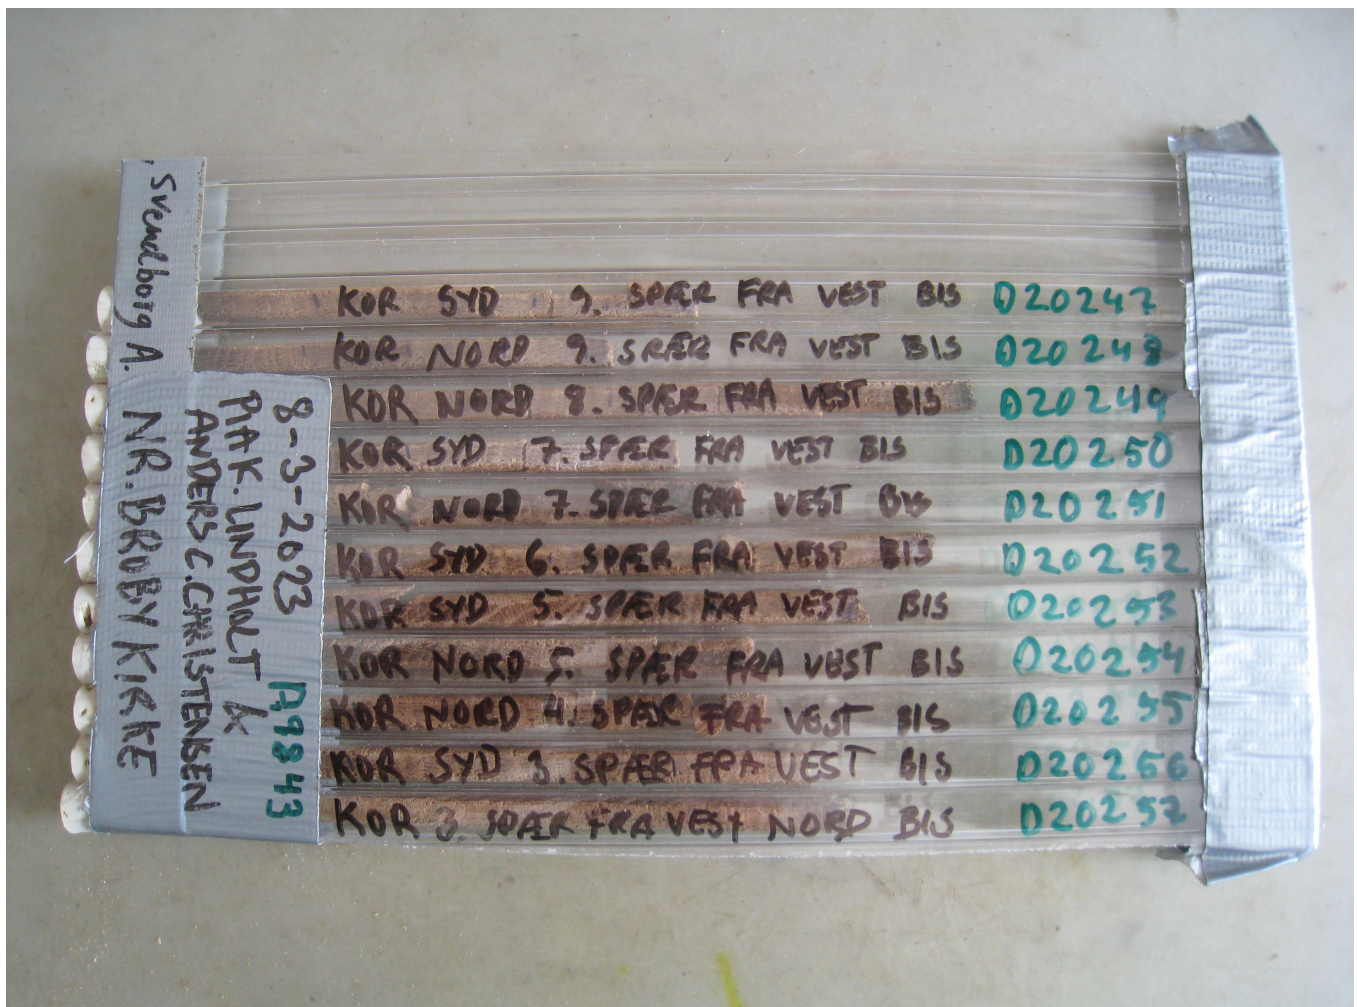 Svendborg A.
8-3-2023
PIA K. LINDHOLT &
ANDERS C. CHRISTENSEN
NR. BROBY KIRKE
A9843
KOR SYD 9. SPÆR FRA VEST BIS D20247
KOR NORD 9. SPÆR FRA VEST BIS D20248
KOR NORD 8. SPÆR FRA VEST BIS D20249
KOR SYD 7. SPÆR FRA VEST BIS D20250
KOR NORD 7. SPÆR FRA VEST BIS D20251
KOR SYD 6. SPÆR FRA VEST BIS D20252
KOR SYD 5. SPÆR FRA VEST BIS D20253
KOR NORD 5. SPÆR FRA VEST BIS D20254
KOR NORD 4. SPÆR FRA VEST BIS D20255
KOR SYD 3. SPÆR FRA VEST BIS D20256
KOR 3. SPÆR FRA VEST NORD BIS D20257